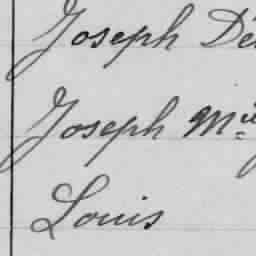 Joseph Dé
Joseph M
Louis